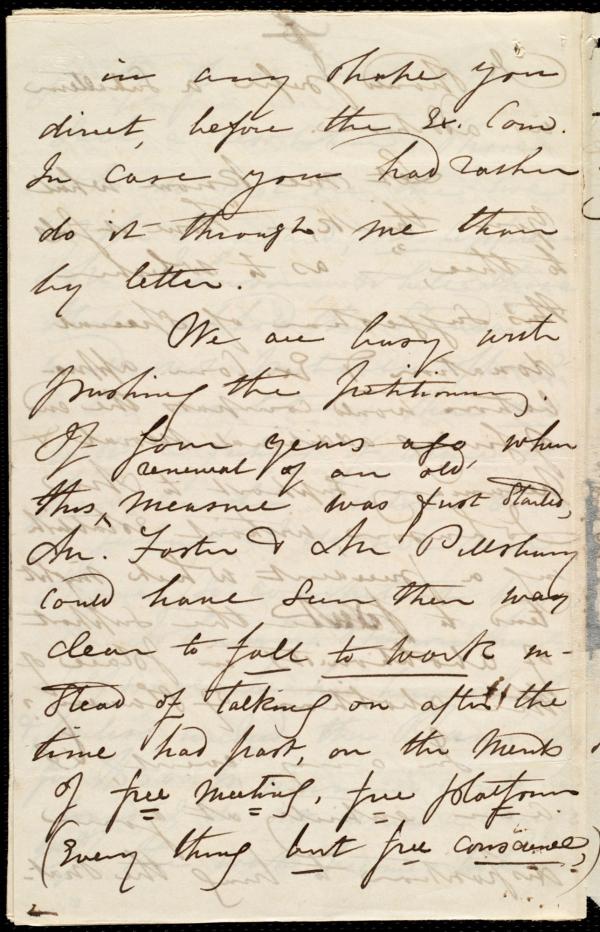 in any shape you
direct, before the Ex. Com.
In case you had rather
do it through me than
by letter.
We are busy with
pushing the petitioning.
If four years ago, when
renewal of an old
this, measure was first started,
Mr. Foster & Mr Pillsbury
could have seen their way
clear to fall to work in-
stead of talking on after the
time had past, on the merits
of free meeting, free platform
(Every thing but free conscience,)